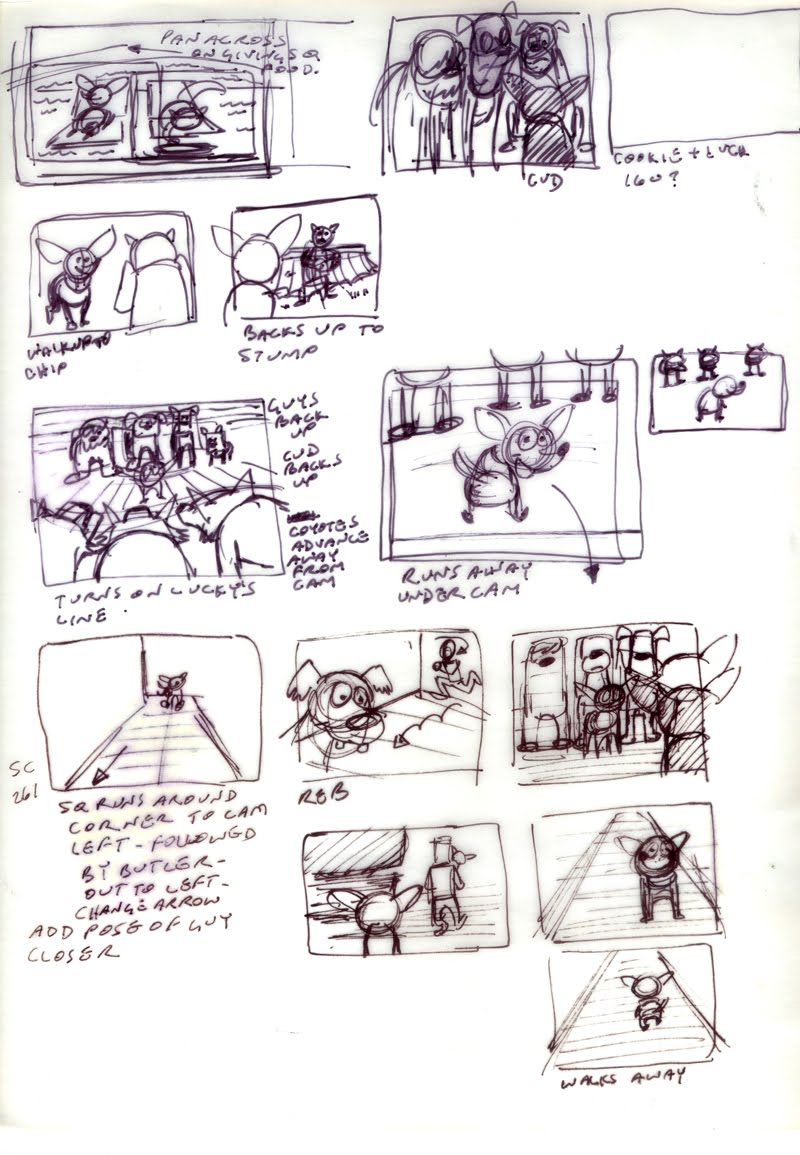 PAN ACROSS
ON GIVING SQ
FOOD.
GUD
COOKIE + LUCK
160?
WALK UP TO
CHIP
BACKS UP TO
STUMP
GUYS
BACK
UP
GUD
BACKS
UP
COYOTES
ADVANCE
AWAY
FROM
CAM
TURNS ON LUCKY'S
LINE.
RUNS AWAY
UNDER CAM
SC
261
SQ RUNS AROUND
CORNER TO CAM
LEFT - FOLLOWED
BY BUTLER -
OUT TO LEFT -
CHANGE ARROW
ADD POSE OF GUY
CLOSER
REB
WALKS AWAY